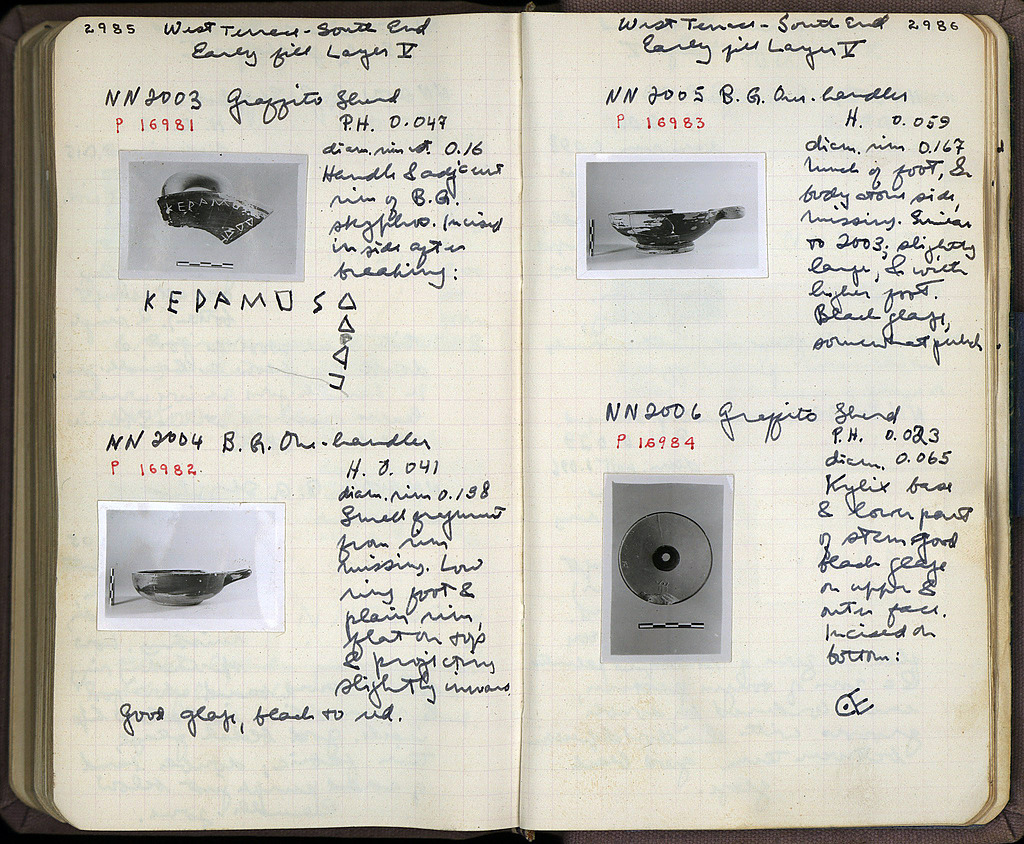 2985 West Terrace - South End
Early fill Layer V
NN 2003 Graffito Sherd
P 16981
P.H. 0.047
diam. rim est. 0.16
Handle & adjacent
rim of B.G.
skyphos. Incised
inside after
breaking:
KEDAMOS
NN 2004 B.G. One-handler
P 16982.
H. 0.041
diam. rim 0.138
Small fragment
from rim
missing. Low
ring foot &
plain rim,
flat on top
& projecting
slightly inward.
Good glaze, black to red.
West Terrace - South End 2986
Early fill Layer V
NN 2005 B.G. One-handler
P 16983
H. 0.059
diam. rim 0.167
Much of foot, &
body at one side,
missing. Similar
to 2003; slightly
larger, & with
higher foot.
Black glaze,
somewhat
NN 2006 Graffito Sherd
P 16984
P.H. 0.023
diam. 0.065
Kylix base
& lower part
of stem good
black glaze
on upper &
outer face.
Incised on
bottom: